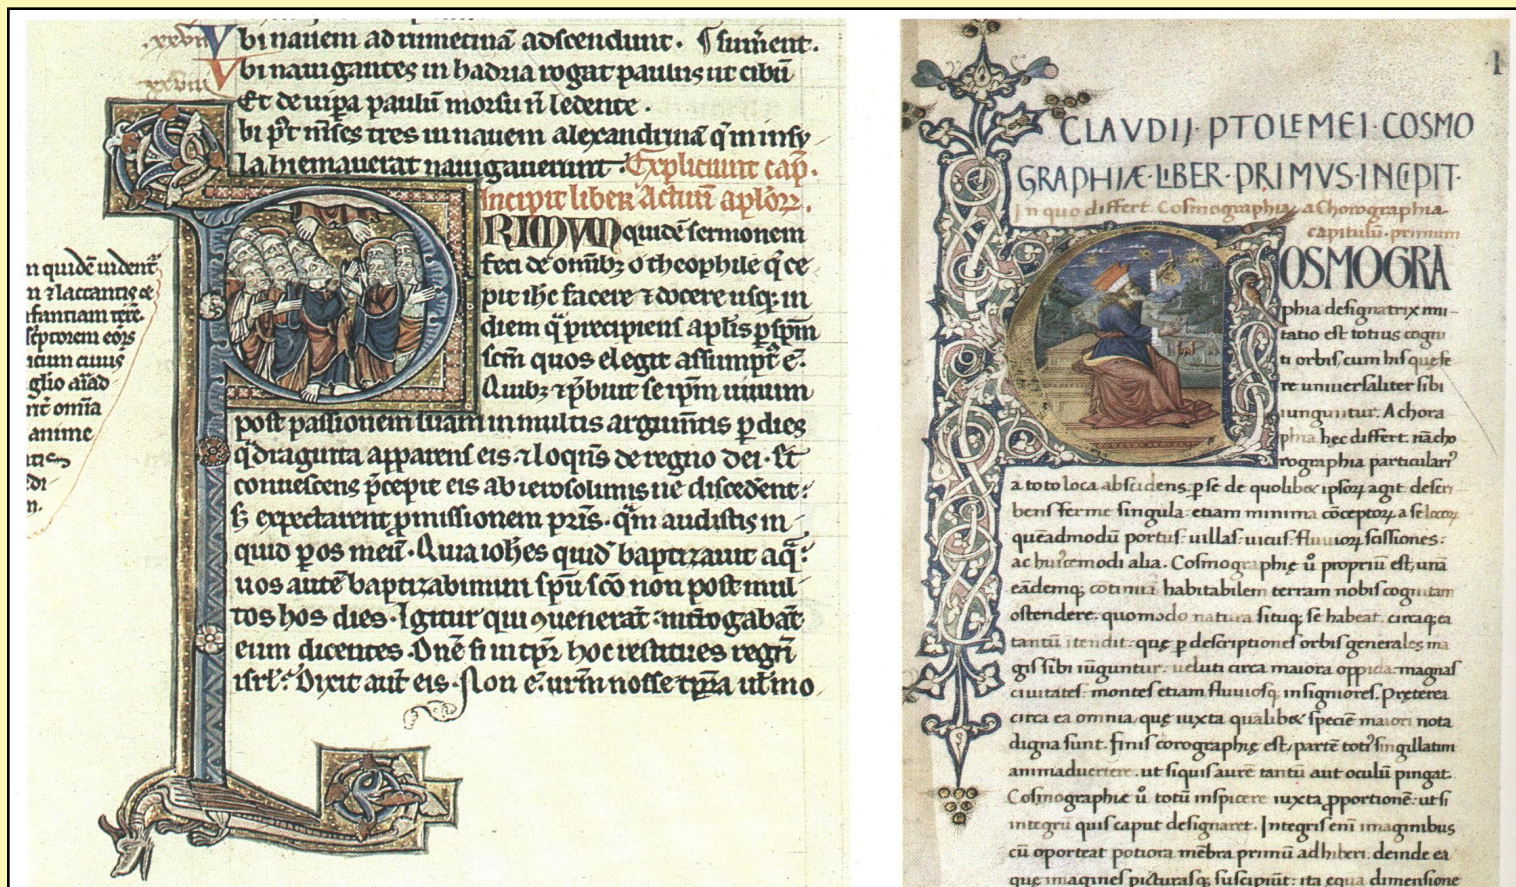 xxvii Vbi nauem ad mirmetinā adscendunt.
xxviii Vbi nauigantes in hadria rogat paulus ut cibū sument.
Et de uipa paulū morsu ñ ledente.
bi pt mses tres in nauem alexandrinā q̄ in insu
la hiemauerat nauigauerunt. Expliciunt cap.
Incipit liber Actuū aplōrꝝ.
PRIMVM quidē sermonem
feci de omībꝫ o theophile q ce
pit ihc facere ⁊ docere usqꝫ in
diem q̄ precipiens aplis p spm
scm quos elegit assumpt ē.
Quibꝫ ⁊ pbuit se ipm uiuum
post passionem suam in multis argumtis p dies
q̄draginta apparens eis ⁊ loqns de regno dei. Et
conuescens pcepit eis ab ierosolimis ne discedent:
sꝫ expectarent pmissionem pris. q̄m audistis in
quid p os meū. Quia iohes quid baptizauit aq̄:
uos autē baptizabimini spu sco non post mul
tos hos dies. Igitur qui ꝯuenerāt: introgabāt
eum dicentes. Dne si in tpr hoc restitues regn
isrl? Dixit aut eis. Non ē urm nosse tpra ul mo
n quidē uident
n ⁊ lactantis
infantiam
cuius
omia
anime
di
m.
I
CLAVDIJ · PTOLEMEI · COSMO
GRAPHIÆ · LIBER · PRIMVS · INCIPIT ·
In quo differt Cosmographia a Chorographia
capitulū. primum
COSMOGRA
phia designatrix imi-
tatio est totius cogni
ti orbis cum his que fe
re uniuersaliter sibi
iunguntur. A choro
phia hec differt. nā cho
rographia particulari
a toto loca abscidens. p se de quolibet ipsoꝝ agit descri
bens ferme singula. etiam minima cōceptoꝝ a se locoꝝ
queādmodū portus. uillas. uicus. fluuioꝝ scissiones:
ac huiᶜemodi alia. Cosmographię ů propriū est, unā
eādemqꝫ cōtinuā habitabilem terram nobis cognitam
ostendere. quomodo natura situqꝫ se habeat. circaqꝫ ea
tantū itendit. quę p descriptiones orbis generales ma
gis sibi iūguntur. ueluti circa maiora oppida. magnas
ciuitates. montes etiam fluuiosqꝫ insigniores. Pręterea
circa ea omnia, quę iuxta quālibet speciē maiori nota
digna sunt. finis corographię est, partē toti singillatim
animaduertere. ut siquis aurē tantū aut oculū pingat.
Cosmographię ů totū inspicere iuxta pportionē. ut si
integrū quis caput designaret. Integris enī imaginibus
cū oporteat potiora mēbra primū adhiberi. deinde ea
quę imagines picturasqꝫ suscipiūt: ita equa dimensione